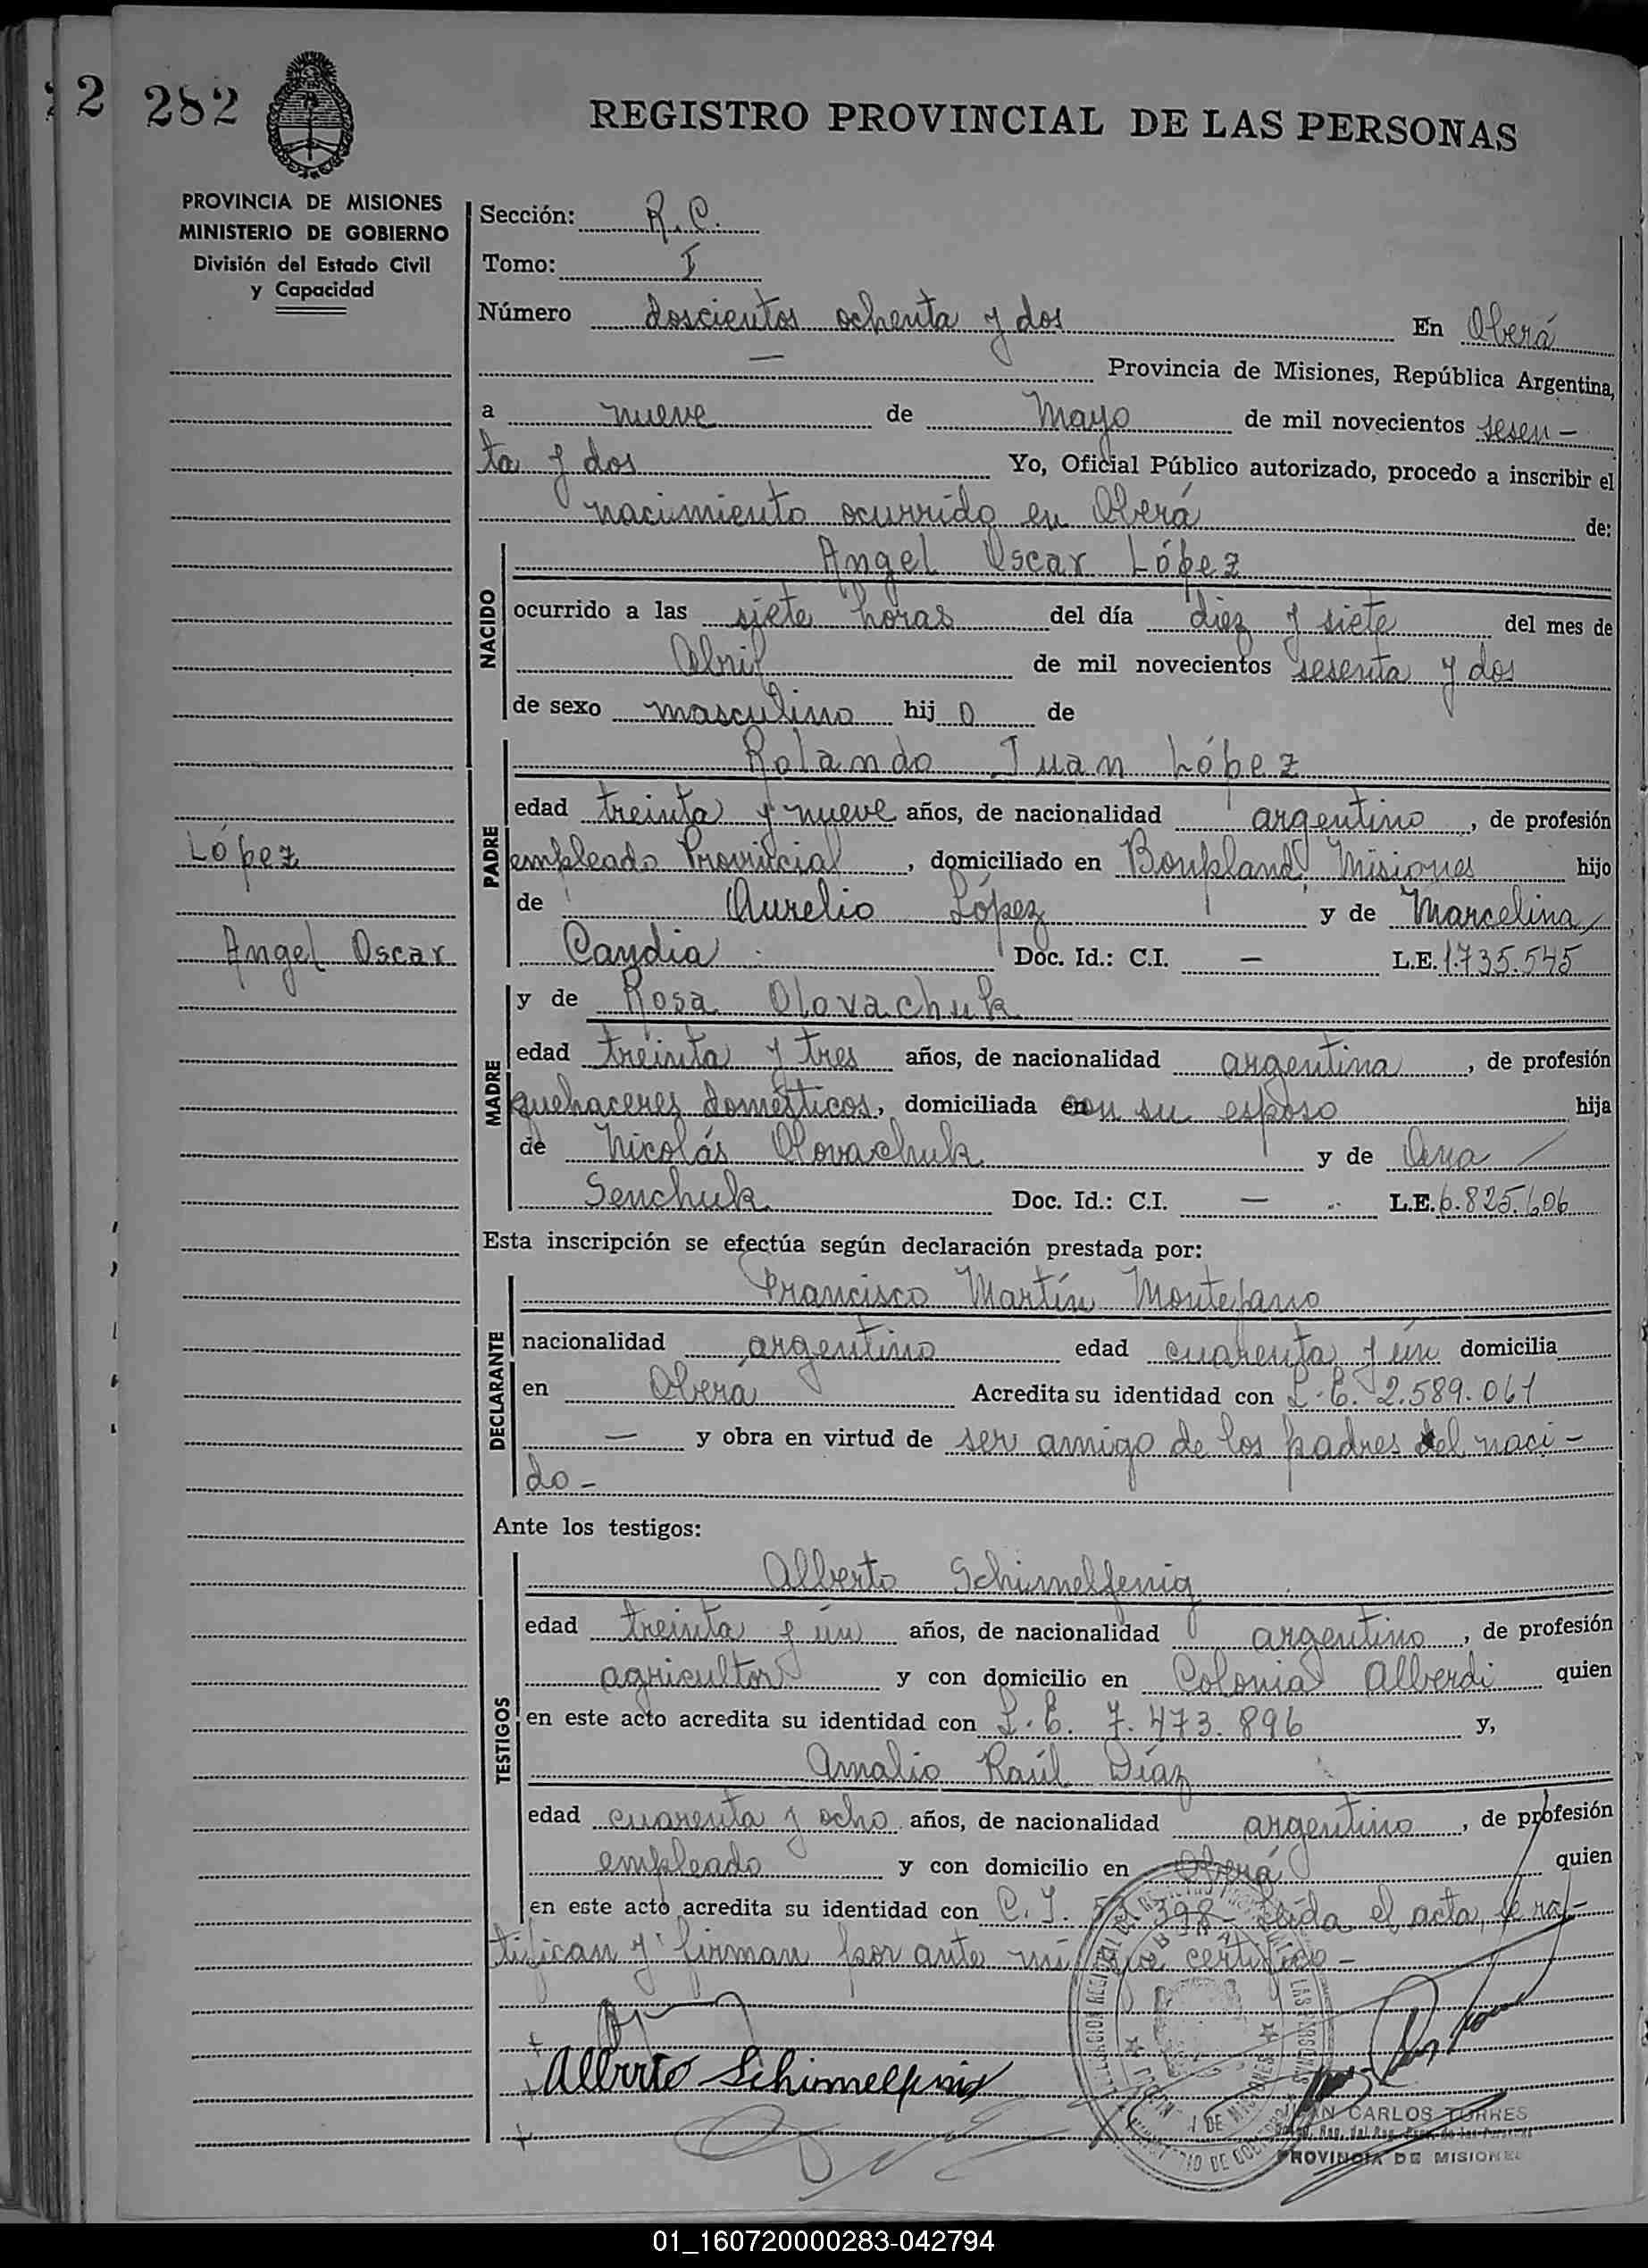 2 282
REGISTRO PROVINCIAL DE LAS PERSONAS
PROVINCIA DE MISIONES
MINISTERIO DE GOBIERNO
División del Estado Civil
y Capacidad
Sección: R.C.
Tomo: I
Número doscientos ochenta y dos En Oberá
— Provincia de Misiones, República Argentina,
a nueve de Mayo de mil novecientos sesen-
ta y dos Yo, Oficial Público autorizado, procedo a inscribir el
nacimiento ocurrido en Oberá de:
NACIDO
Angel Oscar López
ocurrido a las siete horas del día diez y siete del mes de
Abril de mil novecientos sesenta y dos
de sexo masculino hij o de
PADRE
Rolando Juan López
edad treinta y nueve años, de nacionalidad argentino, de profesión
empleado Provincial, domiciliado en Bonpland, Misiones hijo
de Aurelio López y de Marcelina
Candia Doc. Id.: C.I. — L.E. 1.735.545
López
Angel Oscar
MADRE
y de Rosa Olovachuk
edad treinta y tres años, de nacionalidad argentina, de profesión
quehaceres domésticos, domiciliada en con su esposo hija
de Nicolás Olovachuk y de Ana
Senchuk Doc. Id.: C.I. — L.E. 6.825.606
Esta inscripción se efectúa según declaración prestada por:
DECLARANTE
Francisco Martín Montejano
nacionalidad argentino edad cuarenta y ún domicilia
en Oberá Acredita su identidad con L.E. 2.589.061
— y obra en virtud de ser amigo de los padres del naci-
do-
Ante los testigos:
TESTIGOS
Alberto Schimelfenig
edad treinta y ún años, de nacionalidad argentino, de profesión
agricultor y con domicilio en Colonia Alberdi quien
en este acto acredita su identidad con L.E. 7.473.896 y,
Amalio Raúl Díaz
edad cuarenta y ocho años, de nacionalidad argentino, de profesión
empleado y con domicilio en Oberá quien
en este acto acredita su identidad con C.I. 398- Leída el acta, se ra-
tifican y firman por ante mí que certifico-
Alberto Schimelfenig
JUAN CARLOS TORRES
PROVINCIA DE MISIONES
01_160720000283-042794